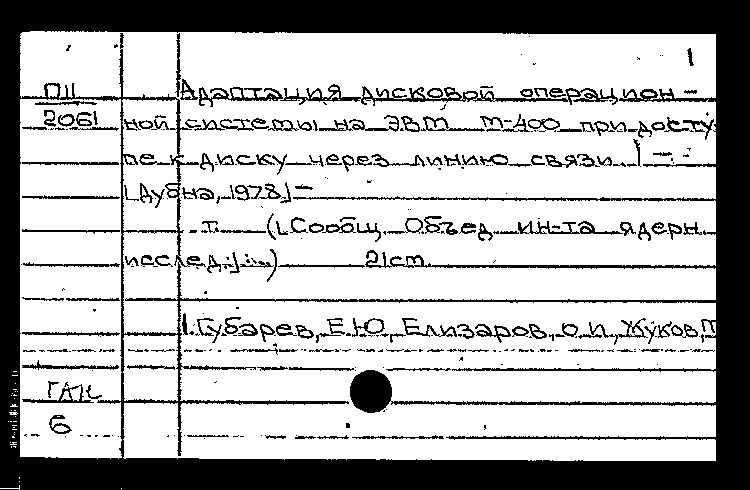 1
П11 Адаптация дисковой операцион-
2061 ной системы на ЭВМ М-400 при досту-
пе к диску через линию связи. | -
[Дубна, 1978] -
т. ([Сообщ. Объед. ин-та ядерн.
исслед.; ...]) 21cm.
1. Губарев, Е.Ю., Елизаров, О.И., Жуков, Г
6